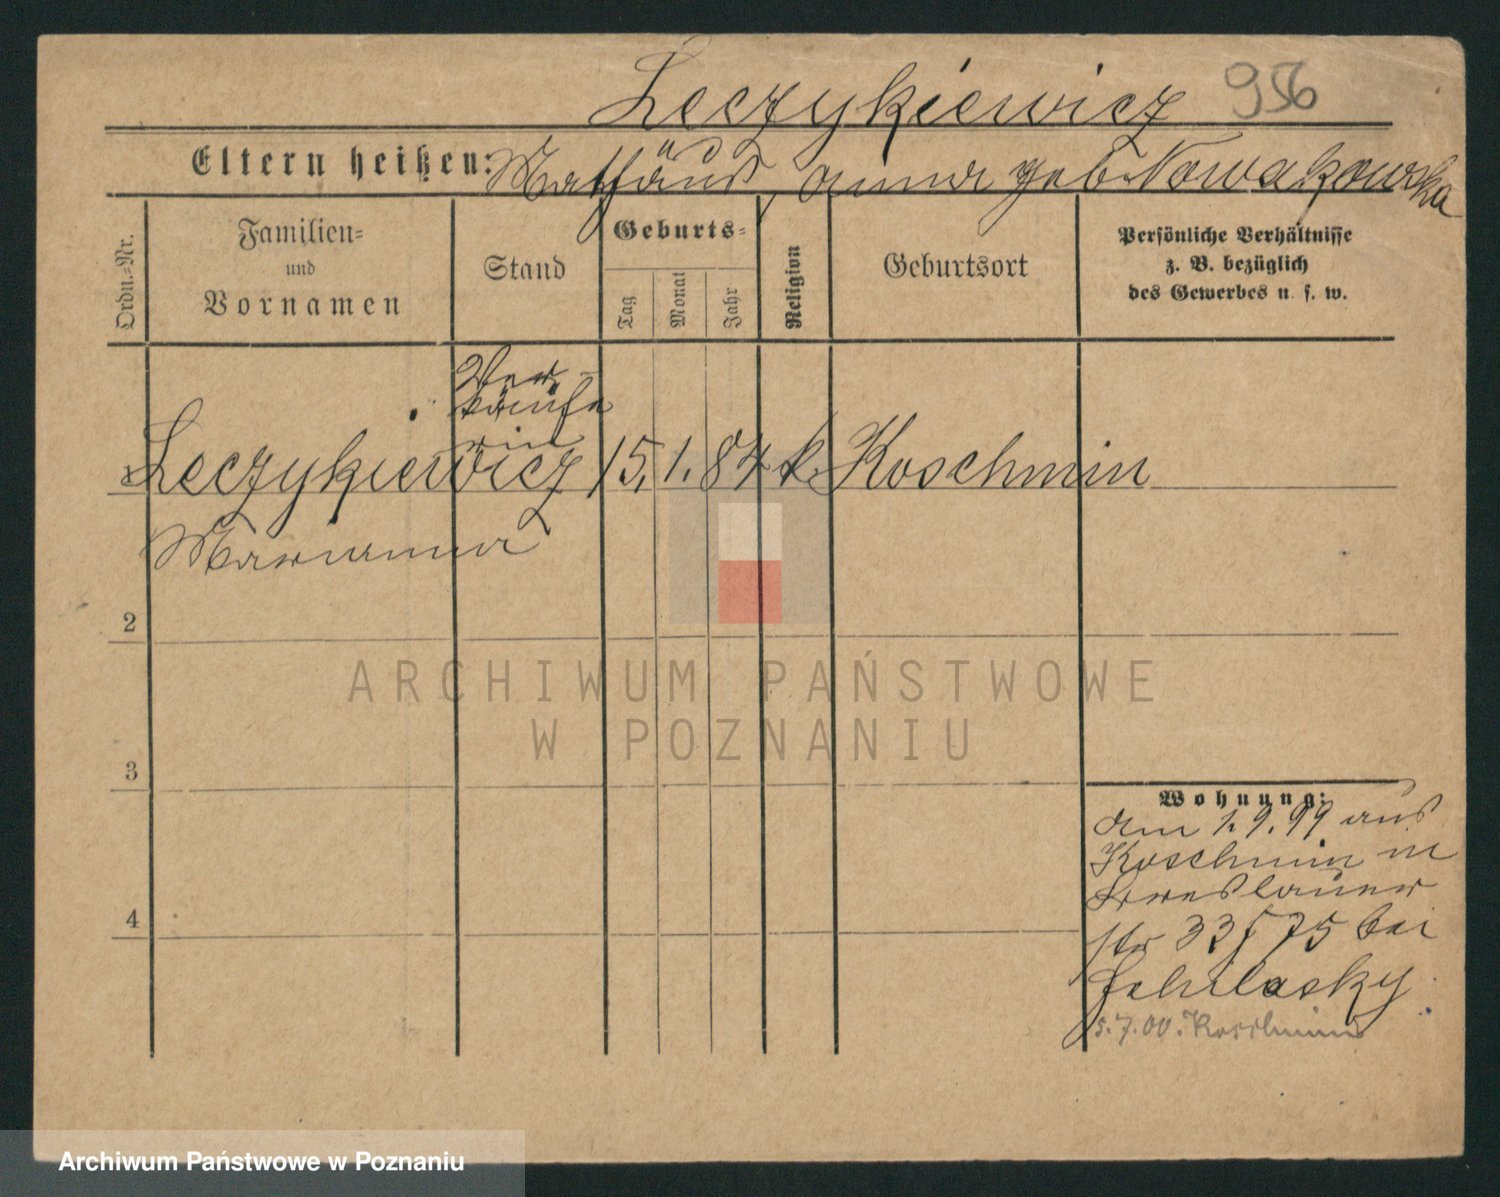 Leczykiewicz 956
Eltern heißen: Mathäus, Anna geb. Nowakowska
Ordn.-Nr.
Familien-
und
Vornamen
Stand
Geburts-
Tag
Monat
Jahr
Religion
Geburtsort
Persönliche Verhältnisse
z. B. bezüglich
des Gewerbes u. s. w.
Ver-
käufe
rin
1 Leczykiewicz 15. 1. 84 k. Koschmin
Marianna
2
3
4
Wohnung:
am 1.9.99 aus
Koschmin in
Breslauer
str 33/35 bei
5.7.00. Koschmin
ARCHIWUM PAŃSTWOWE
W POZNANIU
Archiwum Państwowe w Poznaniu